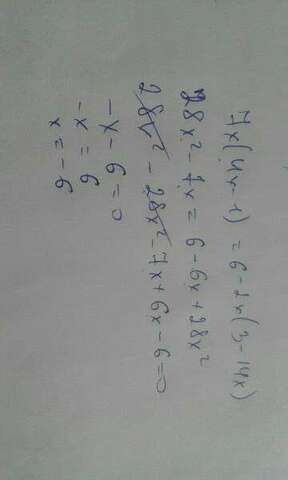 7x(4x-1) = 6-2x(3-14x)
28x²-7x = 6-6x+28x²
28x² - 28x² - 7x + 6x - 6 = 0
-x - 6 = 0
-x = 6
x = -6